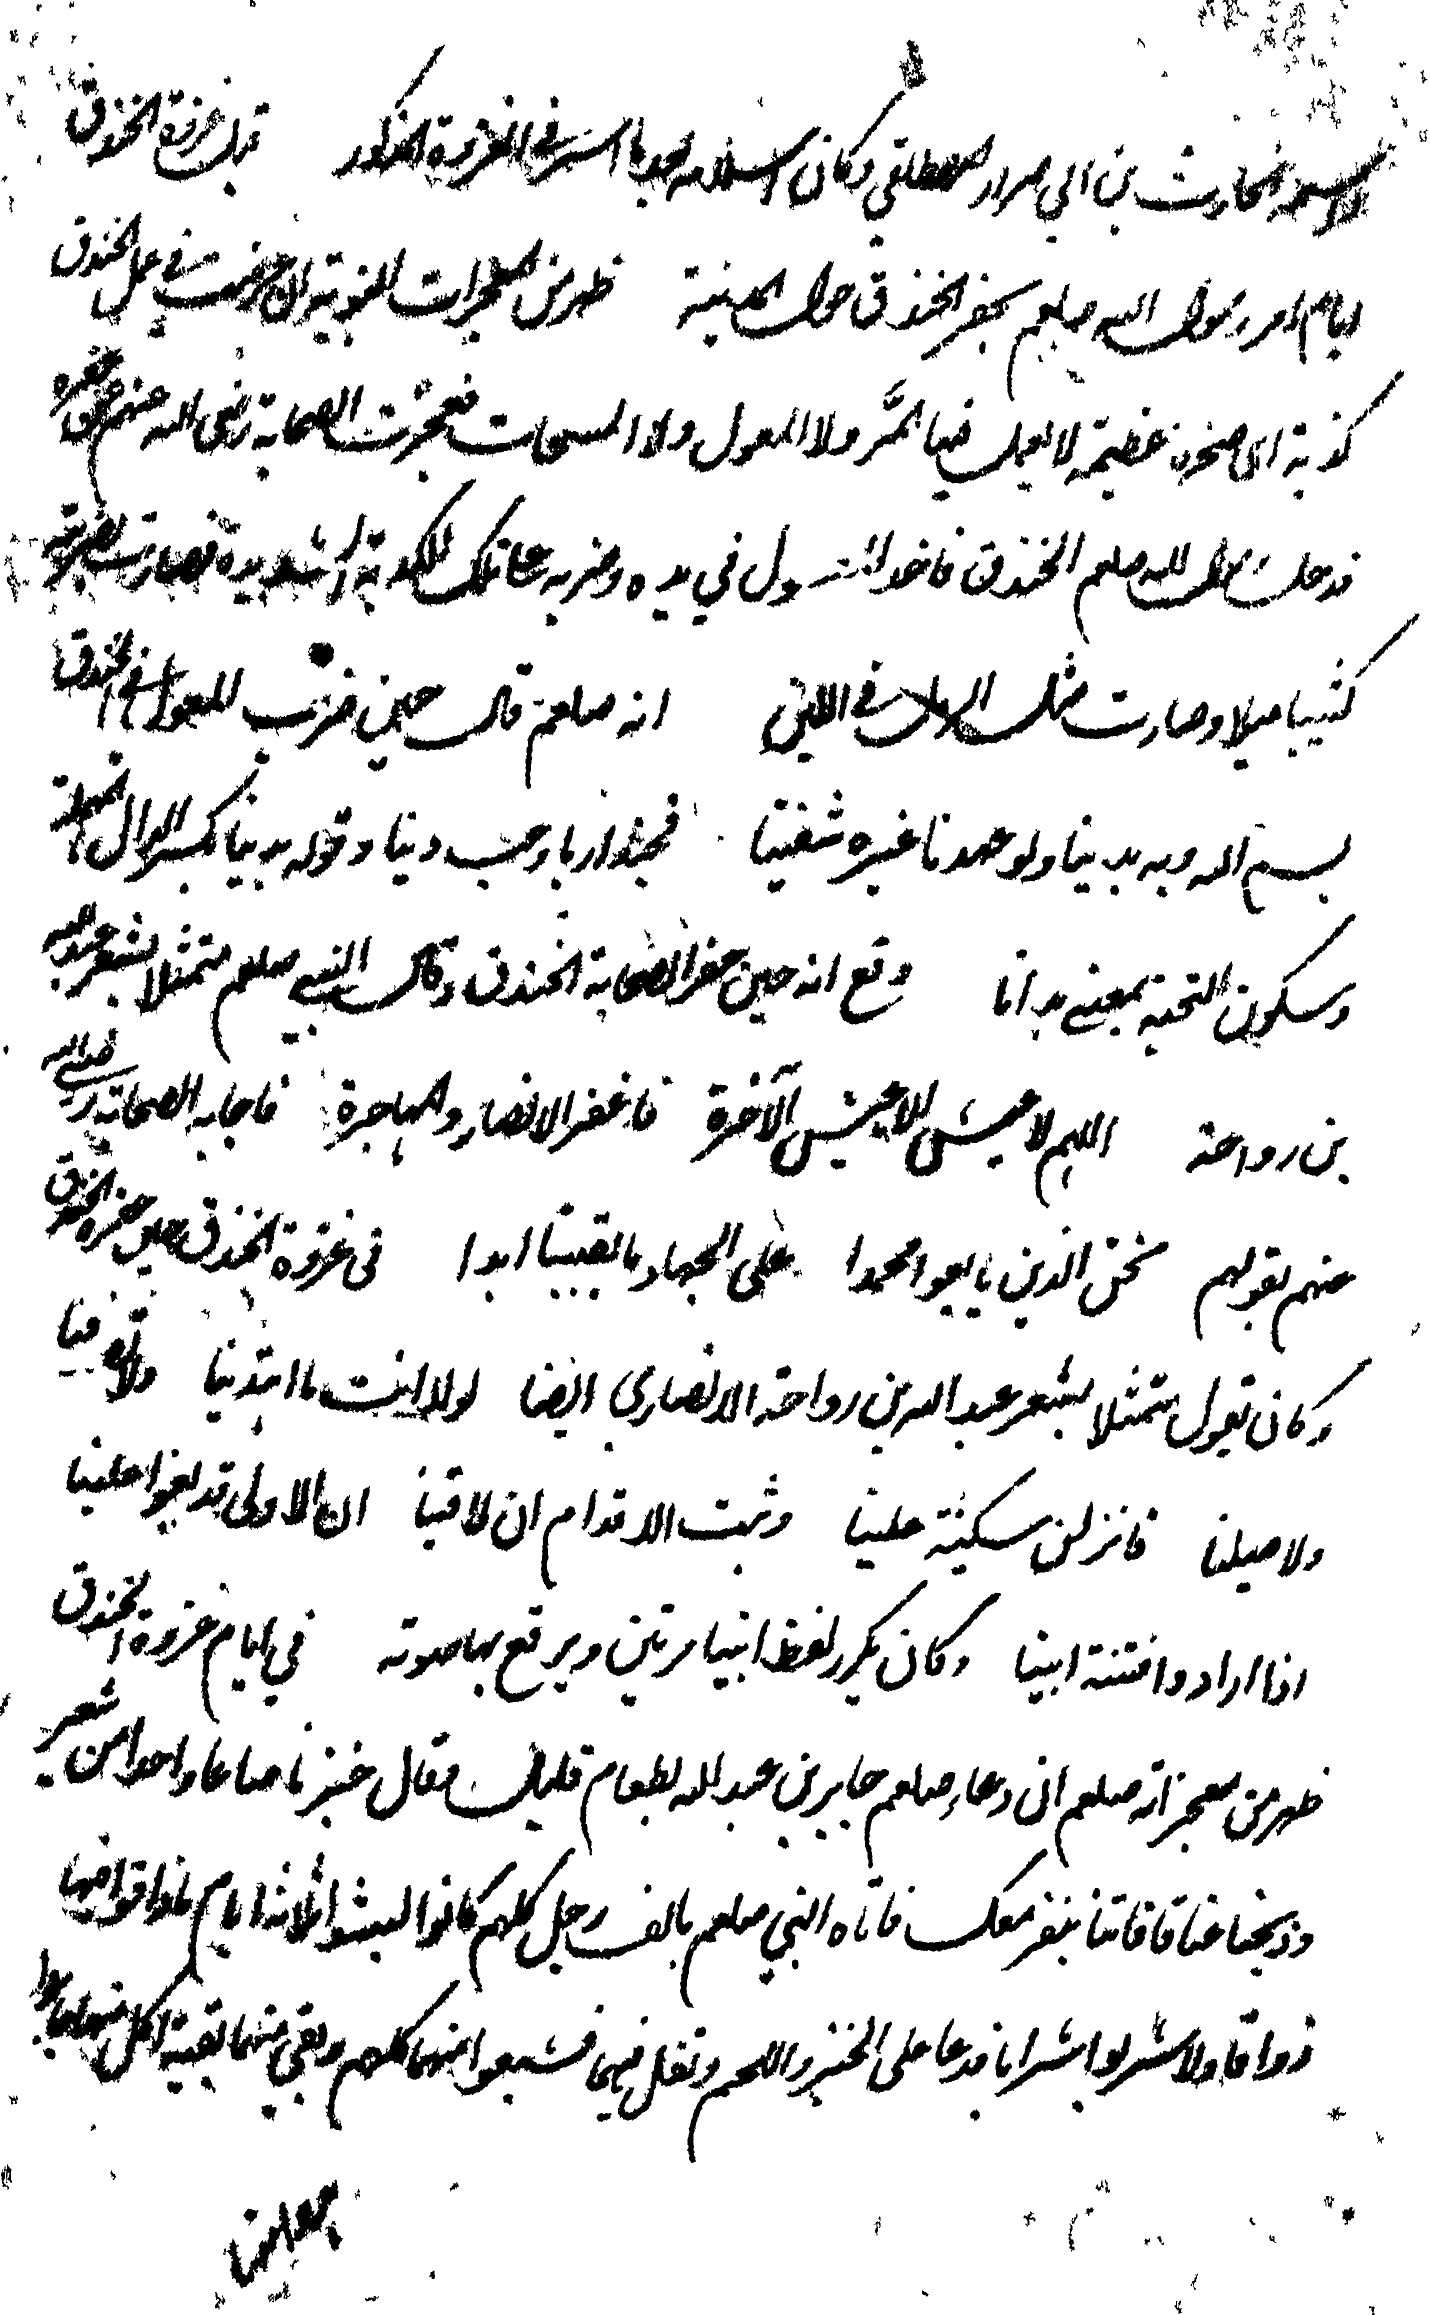 الحارث بن ابي ضرار المصطلقي وكان اسلامه بعد ما اسر في الغزوة المذكور قبل غزوة الخندق
ايام امر رسول الله صلعم بحفر الخندق حول المدينة ظهر من المعجزات النبوية ان عرضت في عمل الخندق
كذبة اى صخرة عظيمة لا يعمل فيها المر ولا المعول ولا المسحات فعجزت الصحابة رضى الله عنهم عن حفره
فدخل رسول الله صلعم الخندق فاخذ المعول في يده وضربه على تلك الكدية الشديدة فصارت بضربته
كثيبا مهيلا وصارت مثل الرمل في اللين انه صلعم قال حين ضرب المعول في الخندق
بسم اله وبه بدينا ولو عبدنا غيره شقينا فحبذا ربا وحب دينا وقوله بدينا بكسر الدال المهملة
وسكون التحتية بمعنى بدانا وقع انه حين حفر الصحابة الخندق وقال النبي صلعم متمثلا بشعر عبد الله
بن رواحة اللهم لا عيش الا عيش الآخرة فاغفر الانصار والمهاجرة فاجابه الصحابة رضى الله
عنهم بقولهم نحن الذين بايعوا محمدا على الجهاد ما بقينا ابدا في غزوة الخندق حين حفره الخندق
وكان يقول متمثلا بشعر عبد الله بن رواحة الانصارى ايضا لولا انت ما اهتدينا ولا تصدقنا
ولا صلينا فانزلن سكينة علينا وثبت الاقدام ان لاقينا ان الاولى قد بغوا علينا
اذا ارادوا فتنة ابينا وكان يكرر لفظ ابينا مرتين ويرفع بها صوته في ايام غزوة الخندق
ظهر من معجزاته صلعم ان دعاء صلعم جابر بن عبد الله لطعام قليل فقال خبزنا صاعا واحدا من شعير
وذبحنا عناقا فاتنا بنفر معك فاتاه النبي صلعم بالف رجل كلهم كانوا لبثوا ثلاثة ايام ما ذاقوا فيها
ذواقا ولا شربوا شرابا فدعا على الخبز واللحم وتفل فيهما فشبعوا منهما كلهم وبقي منهما بقية اكل منها